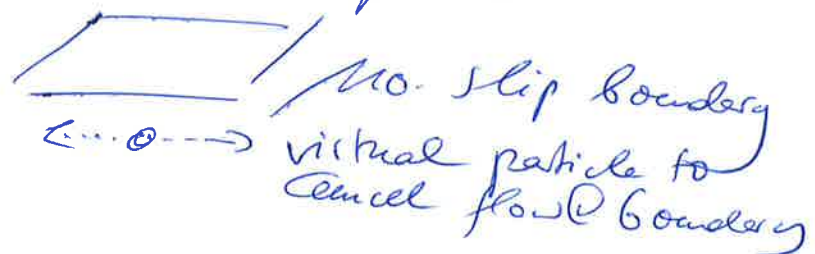 no. slip boundary
virtual particle to
cancel flow@boundary